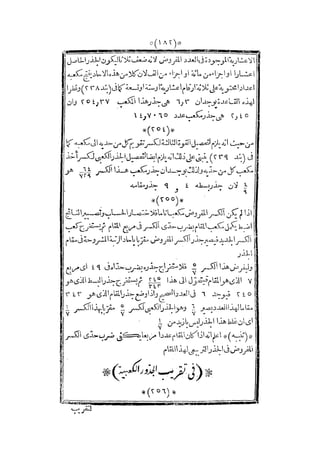 *(١٨٢)*
الاعشارية الموجودة فى العدد المفروض لانه ضعف ثلاثة ليكون الجذر الحاصل
اعشارا او اجزاء من مائة او اجزاء من الف لان كلا من هذه الاحاد ينتج مكعبه
اعداد محتوية على ثلاثة ارقام اعشارية او ستة او تسعة كما فى (بند ٢٣٨)
لهذه القاعدة يوجد ان ٣٫٦ هى جذر هذا المكعب وان
هى جذر مكعب عدد
*(٢٥٤)*
من حيث انه يلزم لتحصيل القوة الثالثة لكسر تقويم كل من حديه الى مكعبه كما
فى (بند ٢٣٩) ينبنى على ذلك انه يلزم ايضا لتحصيل الجذر التكعيبى لكسر أخذ
مكعب كل من حديه وبذلك يوجد ان جذر مكعب هذا الكسر هو
لان جذر بسطه ٤ و ٩ جذر مقامه
*(٢٥٥)*
اذا لم يكن الكسر المفروض مكعبا تاما فلاختصار الحساب وتصيير الناتج
اضبط يكمل مكعب المقام بضرب حدى الكسر فى مربع المقام ثم يستخرج كعب
الكسر الجديد فيصير جذر الكسر المفروض مقربا باحاد الرتبة المشروحة فى مقام
الجذر
وليفرض هذا الكسر فلاستخراج جذره يضرب حداه فى ٤٩ اى مربع
٧ الذى هو المقام فيتحول الى هذا ثم يستخرج جذر البسط الذى هو
٢٤٥ فيوجد ٦ فى العدد الصحيح واذا وضع جذر المقام الذى هو ٣٤٣
مقاما لهذا العدد يصير وهو الجذر التكعيبى لكسر مقربا بهذا الكسر
اى ان غلط هذا الجذر ليس بازيد من
*(تنبيه)* اعلم انه اذا كان المقام عددا مربعا يكفى ضرب حدى الكسر
المفروض فى الجذر التربيعى لهذا المقام
*(فى تقريب الجذور الكعبية)*
*(٢٥٦)*
لتقريب